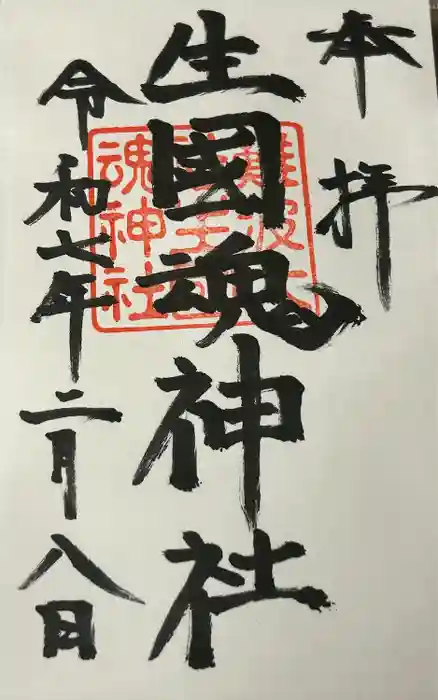 奉拝
生國魂神社
令和七年二月八日
難波大
社生國
魂神社